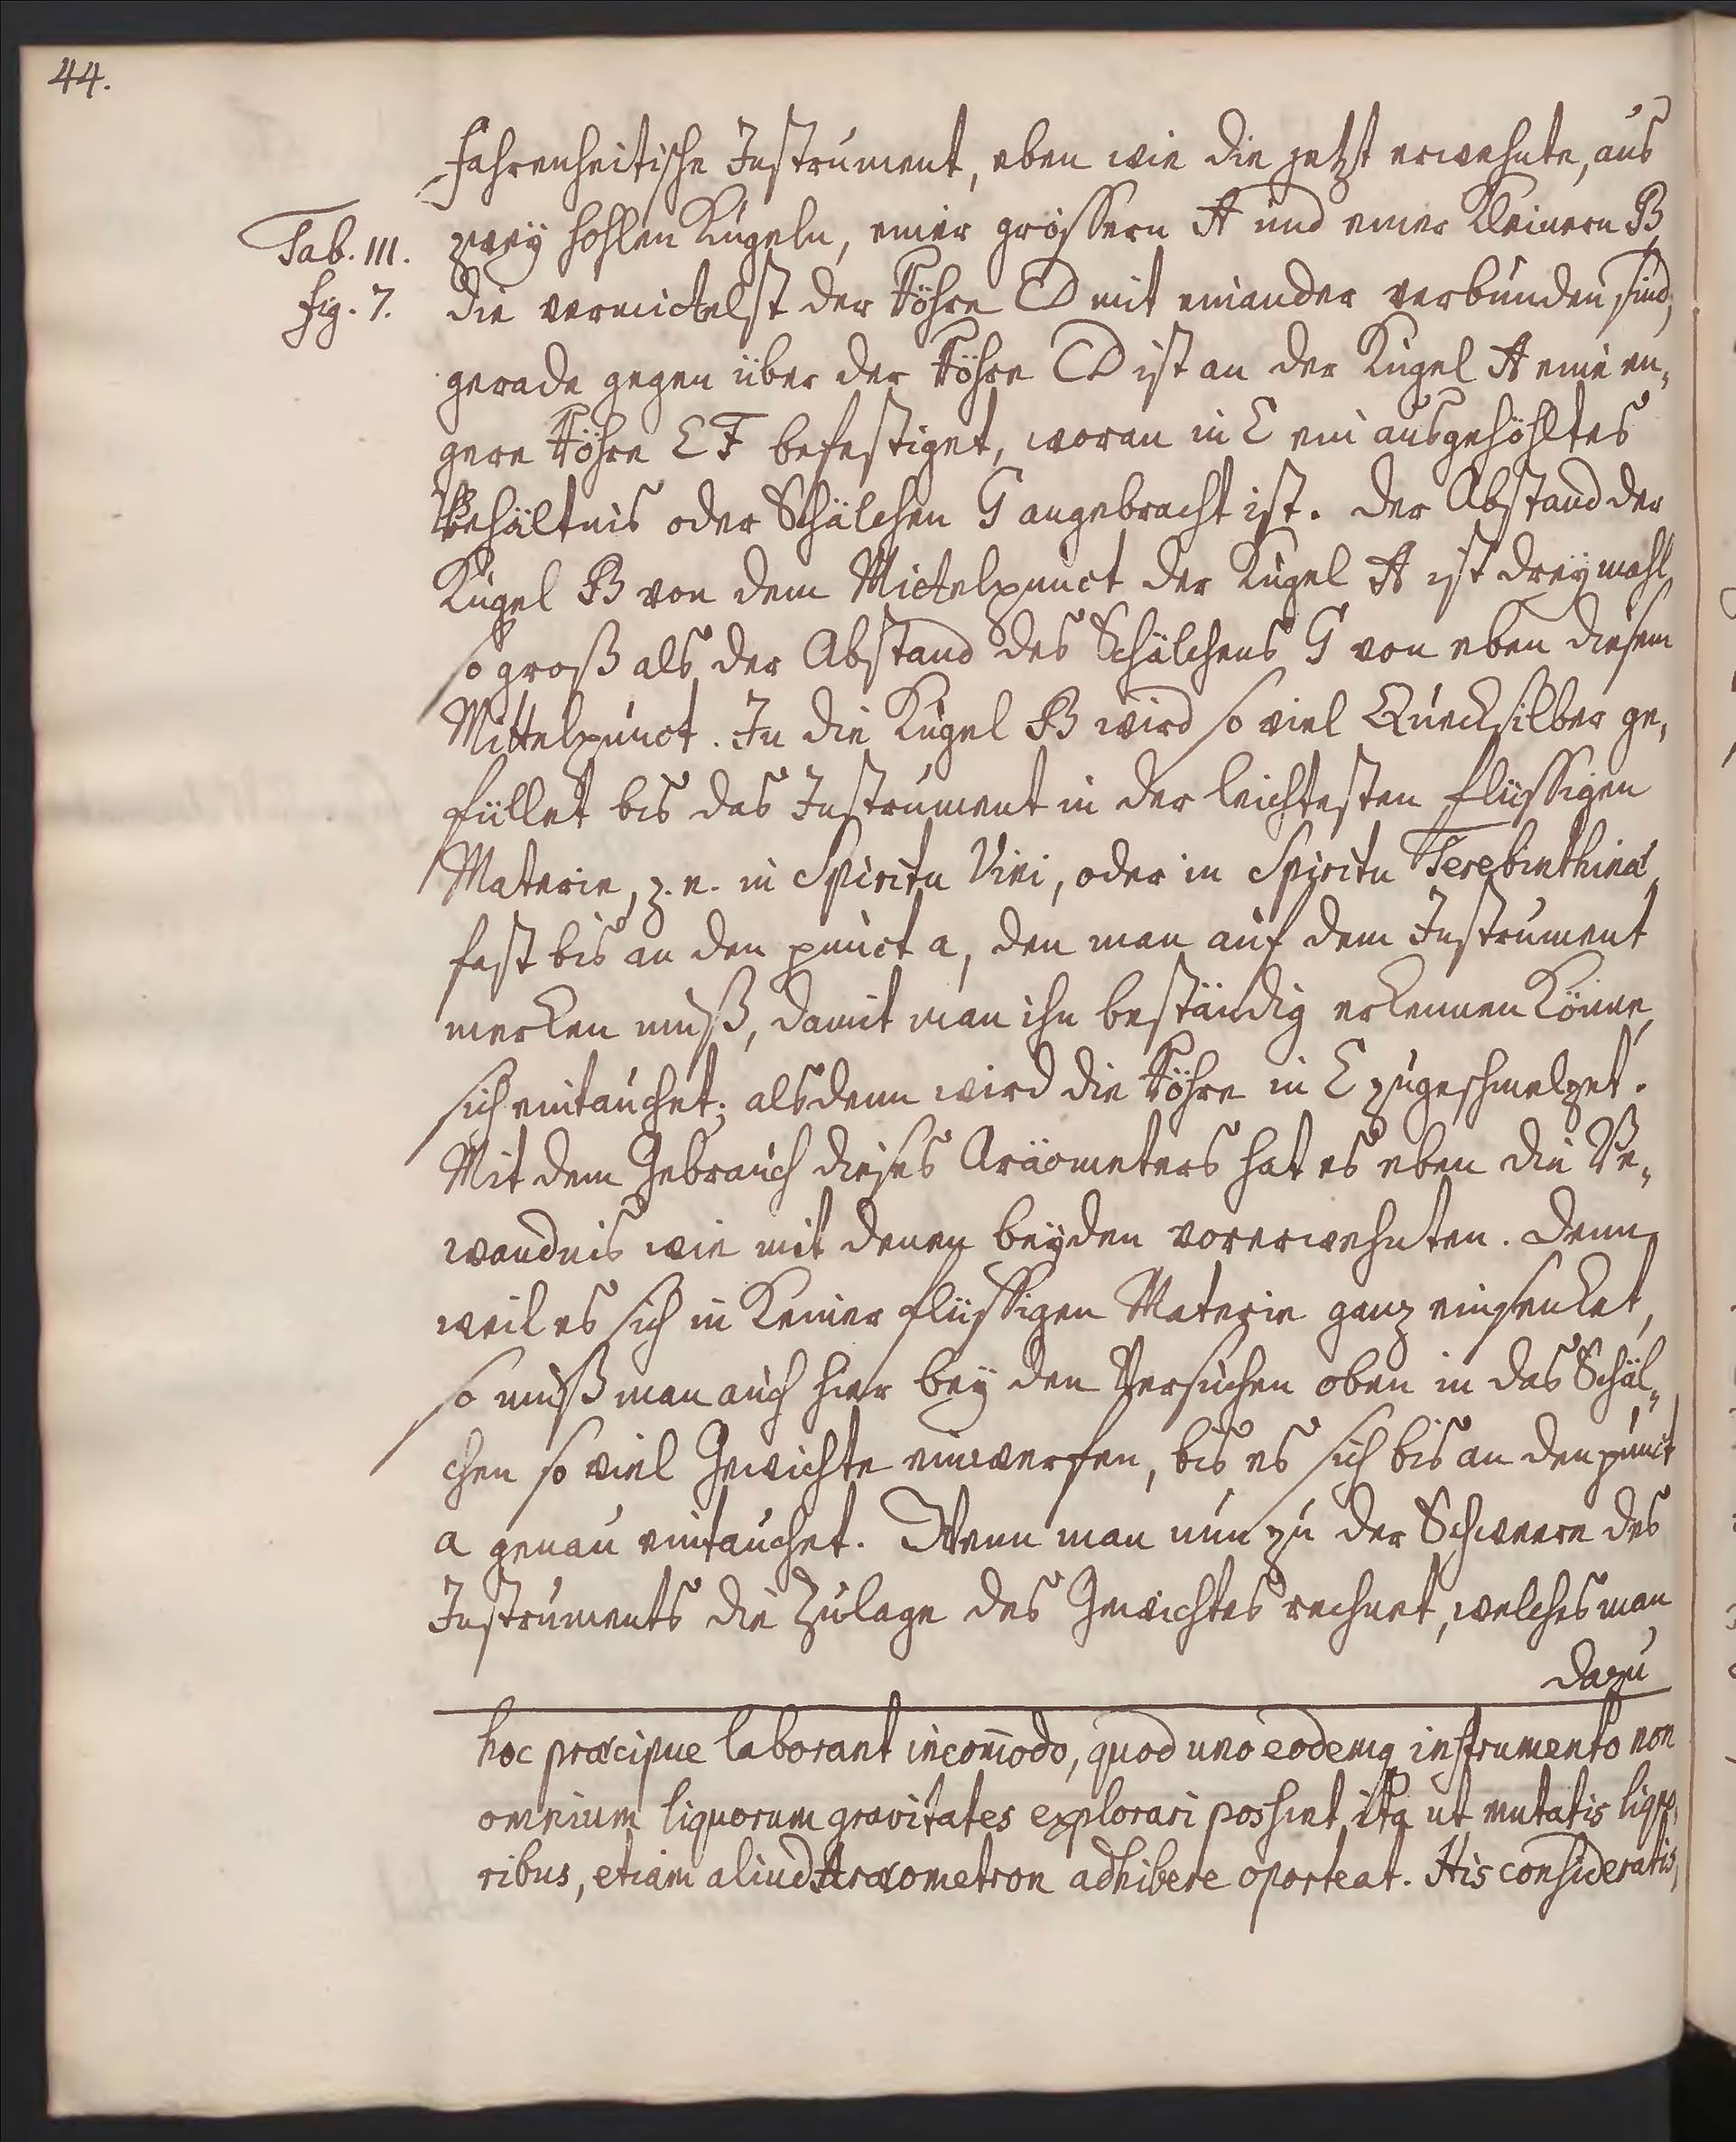 44.
Fahrenheitische Instrument, eben wie die jetzt erwehnte, aus
Tab. III. zwey hohlen Kugeln, einer grössern A und einer kleinern B,
fig. 7. die vermittelst der Röhre CD mit einander verbunden sind,
gerade gegen über der Röhre CD ist an der Kugel A eine en,
gere Röhre EF befestiget, woran in E ein ausgehöhltes
Behältnis oder Schälchen G angebracht ist. Der Abstand der
Kugel B von dem Mittelpunct der Kugel A ist dreymahl
so groß als der Abstand des Schälchens G von eben diesem
Mittelpunct. In die Kugel B wird so viel Quecksilber ge,
füllet bis das Instrument in der leichtesten flüssigen
Materie, z. e. in Spiritu Vini, oder in Spiritu Terebinthinæ
fast bis an den punct a, den man auf dem Instrument
merken muß, damit man ihn beständig erkennen könne,
sich eintauchet; alsdenn wird die Röhre in E zugeschmelzet.
Mit dem Gebrauch dieses Aräometers hat es eben die Be,
wandnis wie mit denen beyden vorerwehnten. Denn
weil es sich in keiner flüssigen Materie ganz einsenket,
so muß man auch hier bey den Versuchen oben in das Schäl,
chen so viel Gewichte einwerfen, bis es sich bis an den punct
a genau eintauchet. Wenn man nun zu der Schweere des
Instruments die Zulage des Gewichtes rechnet, welches man
dazu
hoc præcipue laborant incom̄odo, quod uno eodemq instrumento non
omnium liquorum gravitates explorari possint, ita ut mutatis liquo,
ribus, etiam aliud Aræometron adhibere oporteat. His consideratis,